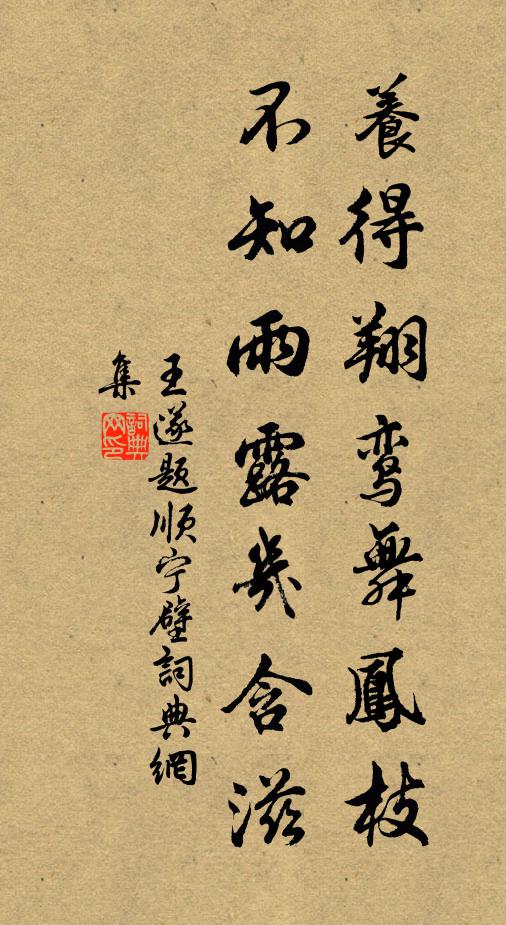 養得翔鸾舞鳳枝
不知雨露幾含滋
王遂题顺宁壁詞典網
集
詞典網印